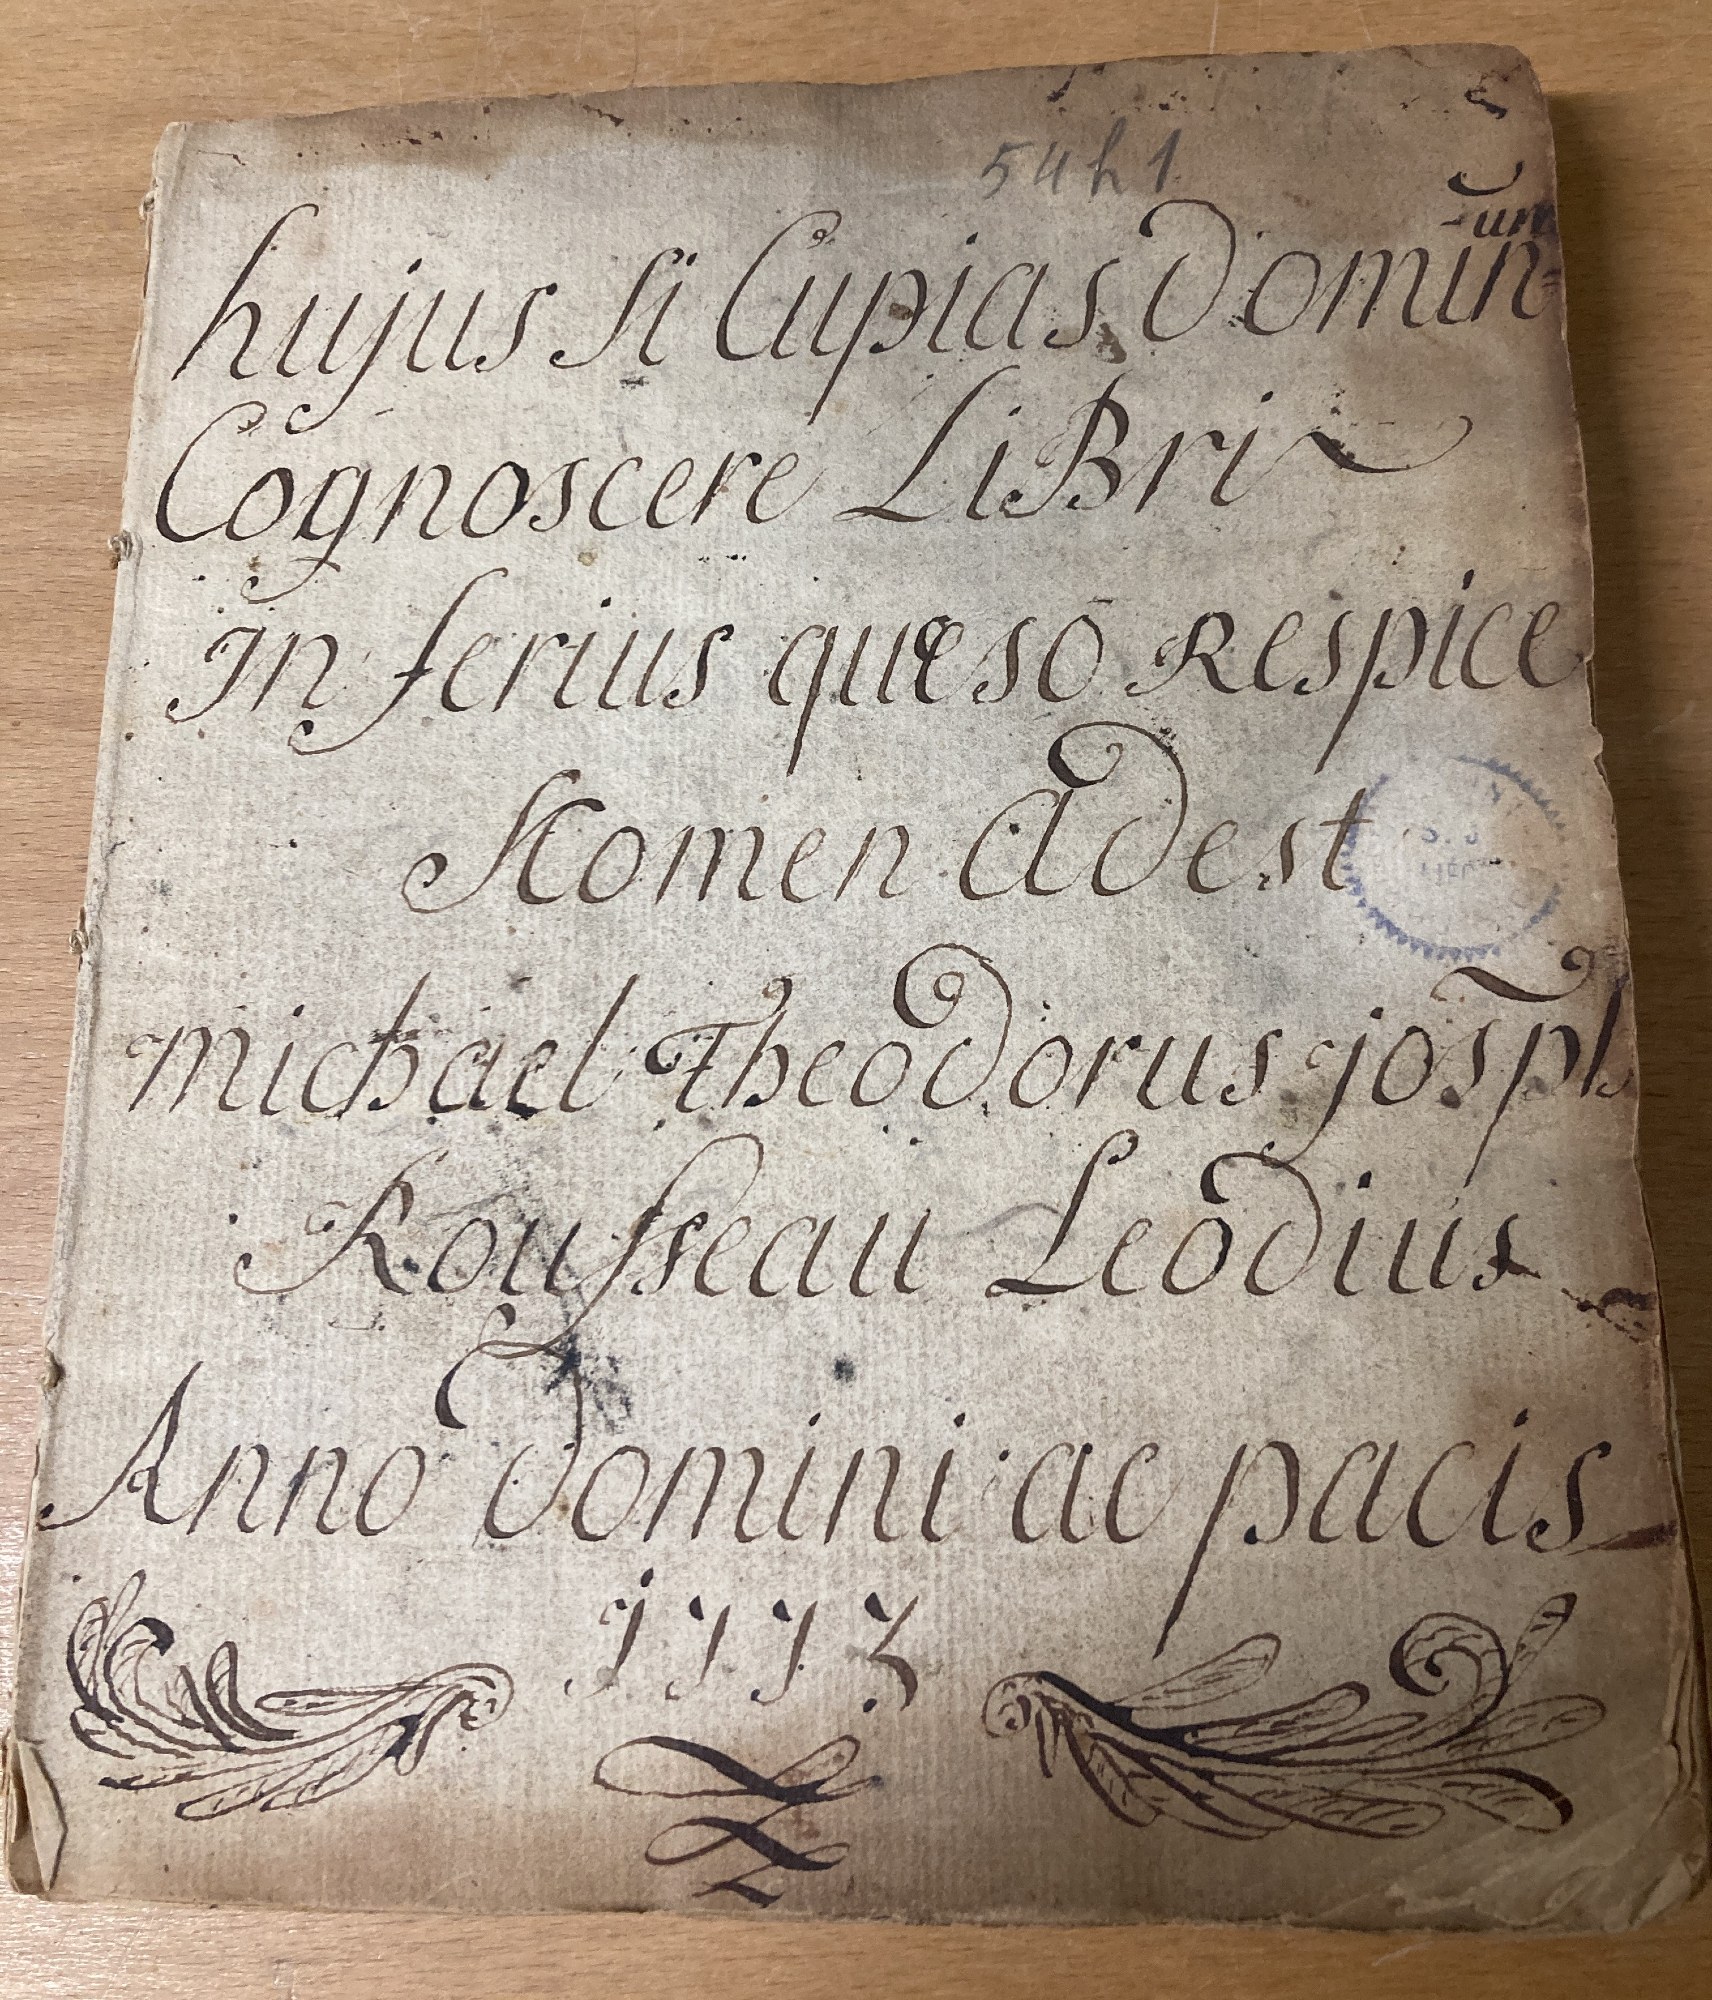 54h1
hujus si Cupias Domin=
-um
Cognoscere LiBri
Inferius quæso Respice
Nomen Adest
michael Theodorus josph
Rousseau Leodius
Anno Domini ac pacis
1773